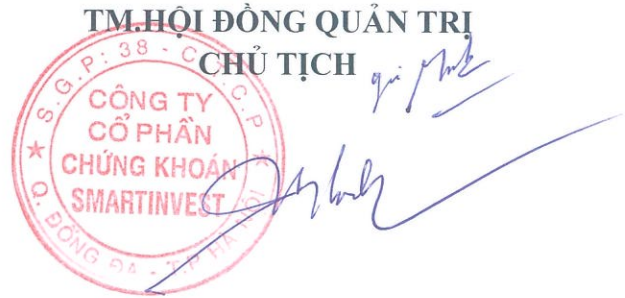 TM.HỘI ĐỒNG QUẢN TRỊ
CHỦ TỊCH
S.G.P: 38 - C.T.C.P
CÔNG TY
CỔ PHẦN
CHỨNG KHOÁN
SMARTINVEST
Q. ĐỐNG ĐA - T.P HÀ NỘI